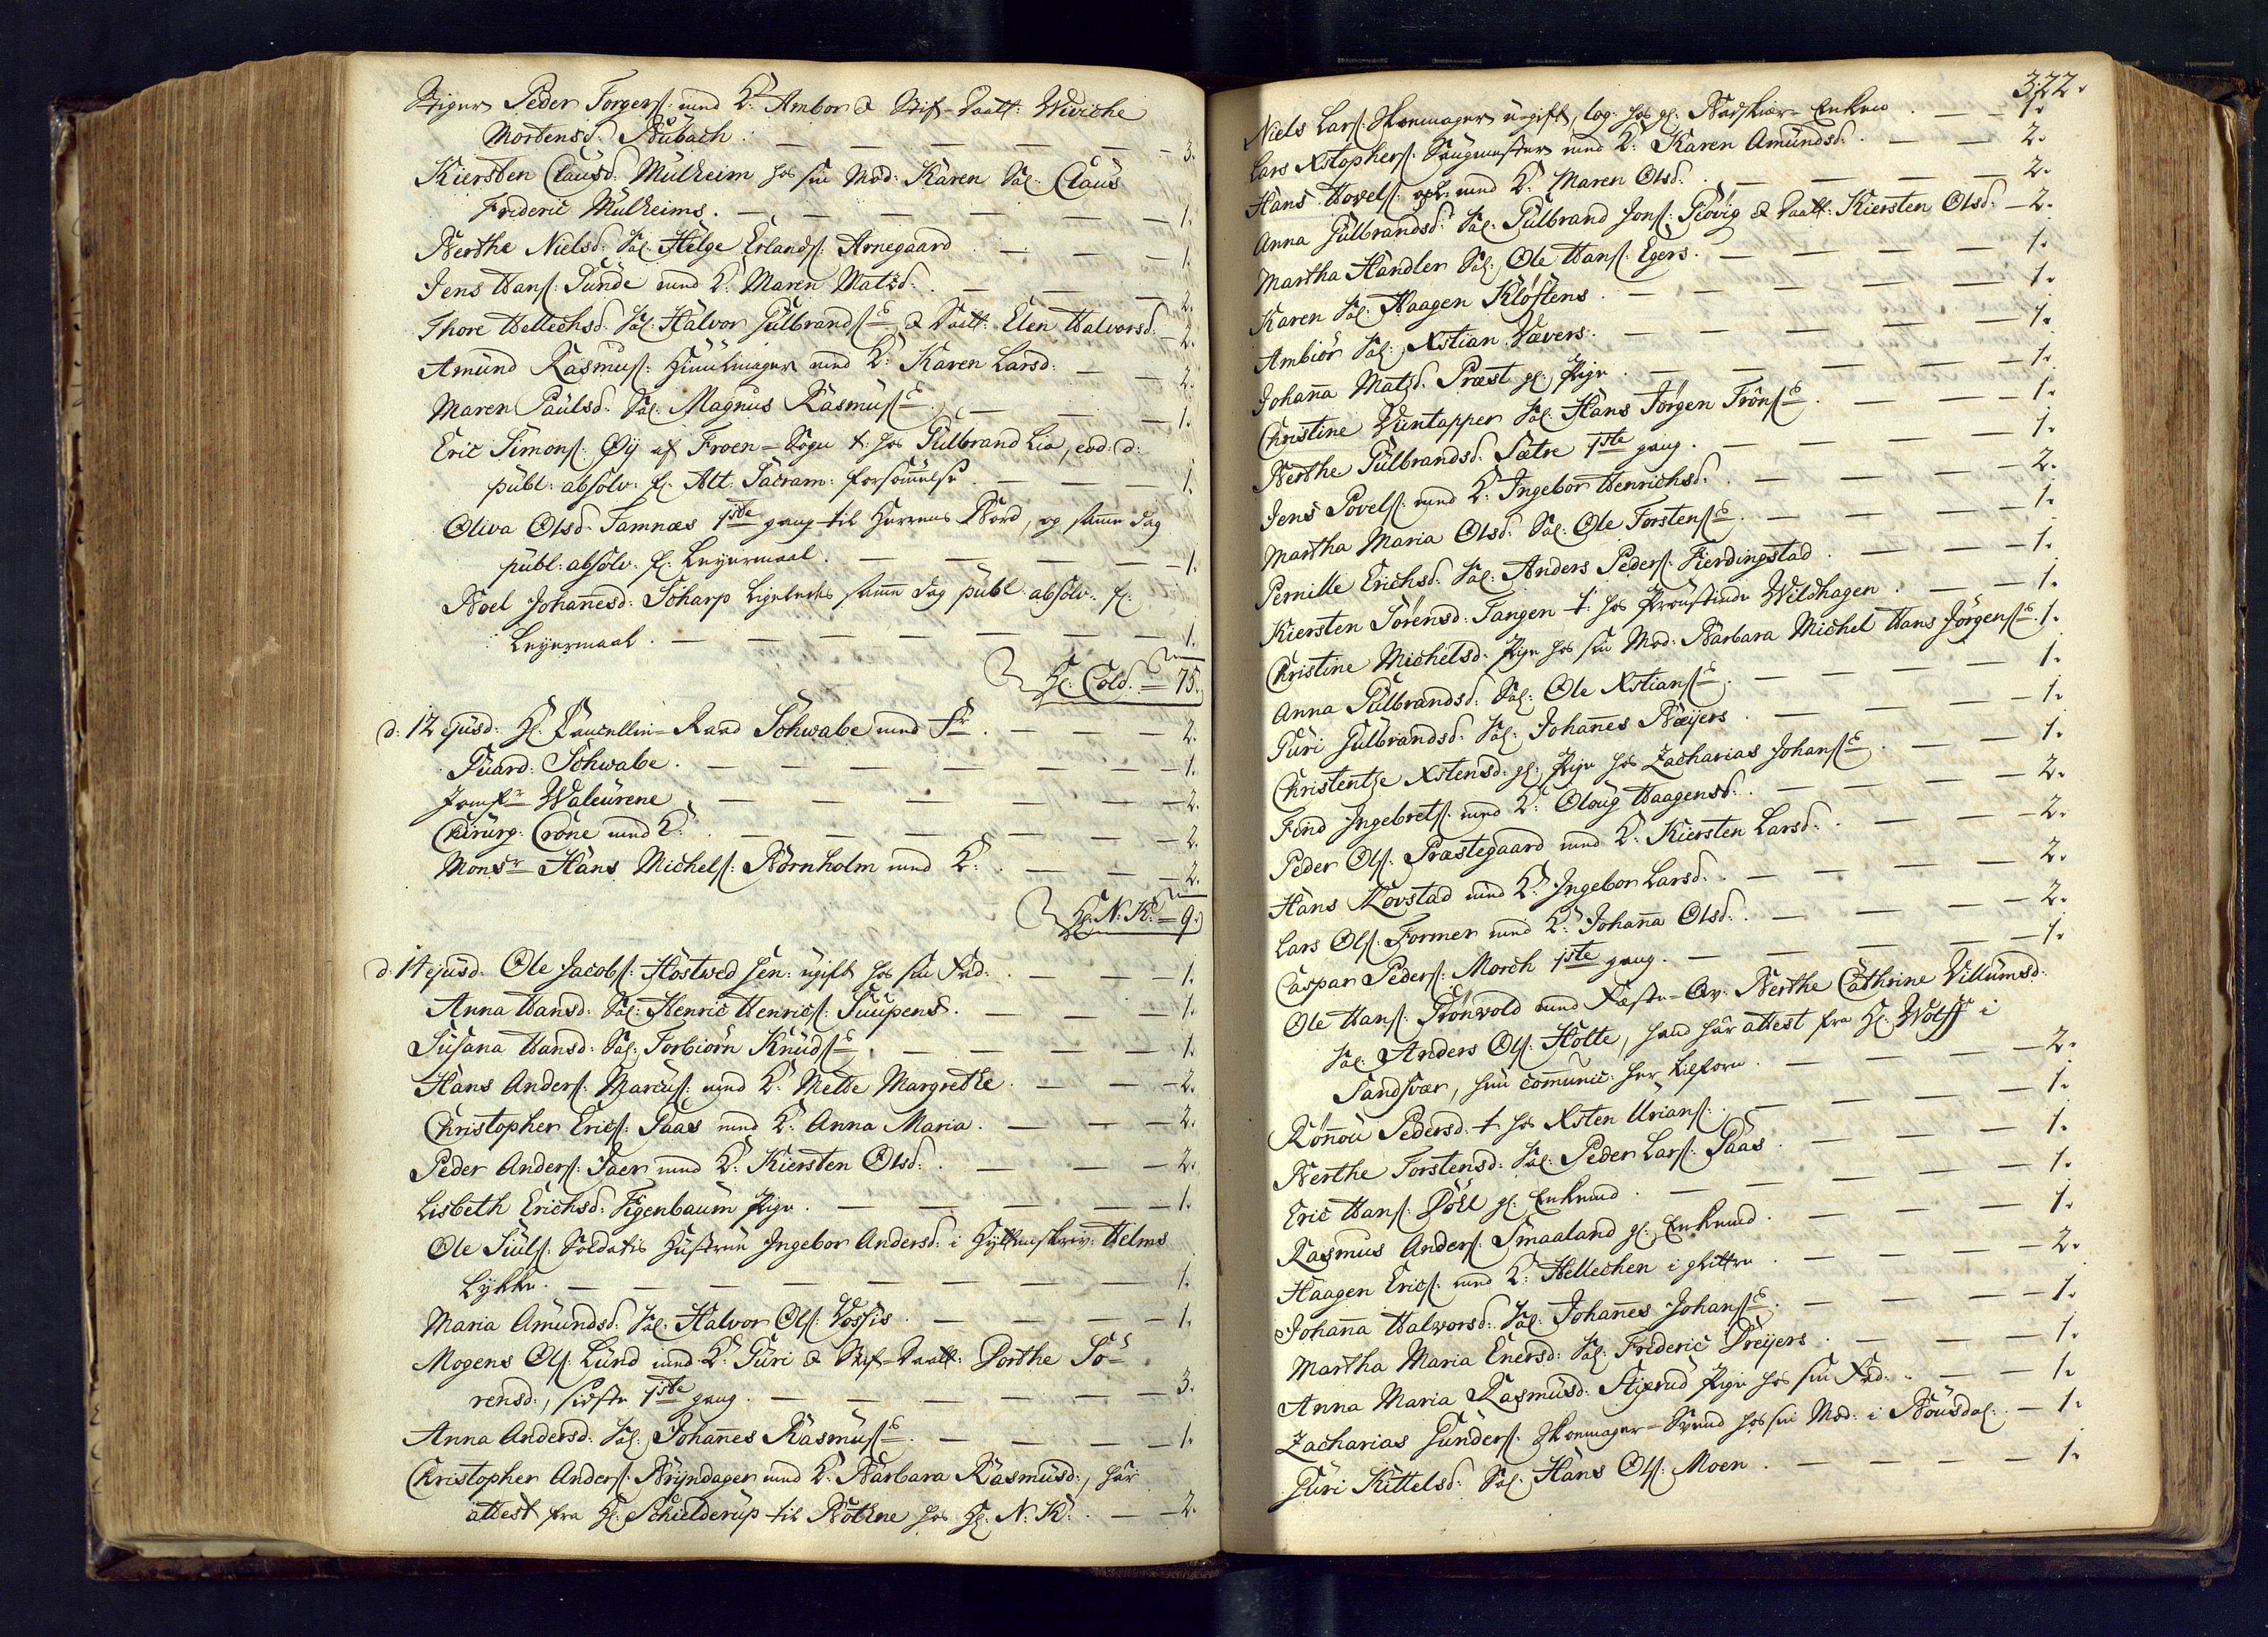 Stiger Peder Torgers: med K: Ambor & Stif-Daatt: Wiviche
Mortensd: Rubach: — 3.
Kiersten Clausd: Mulheim hos sin Mod: Karen Sal: Claus
Frideric Mulheims. — 1.
Berthe Nielsd: Sal: Helge Erlands: Arnegaard — 1.
Jens Hans: Lunde med K: Maren Matsd: — 2.
Thore Hellechsd: Sal: Halvor Gulbrands: & Daatt: Elen Halvorsd: — 2.
Amund Rasmus: Hiulmager med K: Karen Larsd: — 2.
Maren Paulsd: Sal: Magnus Rasmus: — 1.
Eric Simons: Øy af Froen-Sogn t: hos Gulbrand Lia, eod: d:
publ: absolv: f: Alt: Sacram: forsømmelse — 1.
Oliva Olsd: Samnæs 1ste gang til Herrens Bord, og samme dag
publ: absolv: f: Leyermaal. — 1.
Boel Johannesd: Scharp ligeledes samme dag publ: absolv: f:
Leyermaal. — 1.
Hr: Cold. = 75.
d: 12 ejusd: Hr: Cancellie-Raad Schwabe med Fr — 2.
Guard: Schwabe. — 1.
Jomfr Waleurene — 2.
Chirurg: Crone med K: — 2.
Monsr Hans Michels: Bornholm med K: — 2.
Hr: N: K: = 9.
d: 14 ejusd: Ole Jacobs: Hostwed sen: ugift hos sin Fad: — 1.
Anna Hansd: Sal: Henric Henrics: Suupens. — 1.
Susana Hansd: Sal: Torbiørn Knuds: — 1.
Hans Anders: Marcus: med K: Mette Margrethe — 2.
Christopher Erics: Saas med K: Anna Maria. — 2.
Peder Anders: Saer med K: Kiersten Olsd: — 2.
Lisbeth Erichsd: Figenbaum Pige. — 1.
Ole Siuls: Soldats Hustrue Ingebor Andersd: i Hytteskriv: Helms
Løkke. — 1.
Maria Amundsd: Sal: Halvor Ols: Vossis. — 1.
Mogens Ols: Lund med K: Guri & Stif-Daatt: Dorthe So-
rensd:, sidste 1ste gang. — 3.
Anna Andersd: Sal: Johannes Rasmus: — 1.
Christopher Anders: Bryndager med K: Barbara Rasmusd:, har
attest fra Hr: Schielderup til Bothne hos Hr: N: K: — 2.
322.
Niels Lars: Skomager ugift, log: hos gl: Badskiær-Enken — 1.
Lars Xstophers: Saugmester med K: Karen Amundsd: — 2.
Hans Povels: med K: Maren Olsd: — 2.
Anna Gulbrandsd: Sal: Gulbrand Jons: Giøvig & Daatt: Kiersten Olsd: — 2.
Martha Handler Sal: Ole Hans: Egers. — 1.
Karen Sal: Haagen Kløftens. — 1.
Ambiør Sal: Xstian Vævers. — 1.
Johanna Matsd: Præst gl: Pige. — 1.
Christine Viintapper Sal: Hans Jørgen Trøns: — 1.
Berthe Gulbrandsd: Sætre 1ste gang. — 1.
Jens Povels: med K: Ingebor Henrichsd: — 2.
Martha Maria Olsd: Sal: Ole Torstens: — 1.
Pernille Erichsd: Sal: Anders Peders: Fierdingstad — 1.
Kiersten Sørensd: Tangen t: hos Proustinde Wildhagen. — 1.
Christine Michelsd: Pige hos sin Mod: Barbara Michel Hans Jørgens: 1.
Anna Gulbrandsd: Sal: Ole Xstians: — 1.
Guri Gulbrandsd: Sal: Johannes Bøyers — 1.
Christentze Xstensd: gl: Pige hos Zacharias Johans: — 1.
Find Ingebrets: med K: Oloug Haagensd: — 2.
Peder Ols: Præstegaard med K: Kiersten Larsd: — 2.
Hans Rovstad med K: Ingebor Larsd: — 2.
Lars Ols: Former med K: Johanna Olsd: — 2.
Caspar Peders: Morch 1ste gang. — 1.
Ole Hans: Grønvold med Fæste-Qv: Berthe Cathrine Villumsd:
Sal: Anders Ols: Holte, hand har attest fra Hr: Wolff i
Sandsvær, hun communic: her tilforn. — 2.
Rønnou Pedersd: t: hos Xsten Urians: — 1.
Berthe Torstensd: Sal: Peder Lars: Saas. — 1.
Eric Hans: Doll gl: Enkemand. — 1.
Rasmus Anders: Smaaland gl: Enkemand. — 1.
Haagen Erics: med K: Hellechen i glittre. — 2.
Johanna Halvorsd: Sal: Johannes Johans: — 1.
Martha Maria Enersd: Sal: Frideric Dreyers — 1.
Anna Maria Rasmusd: Stixrud Pige hos sin Fad: — 1.
Zacharias Gunders: Skomager-Svend hos sin Mod: i Bousdal: — 1.
Guri Kittelsd: Sal: Hans Ols: Moen. — 1.